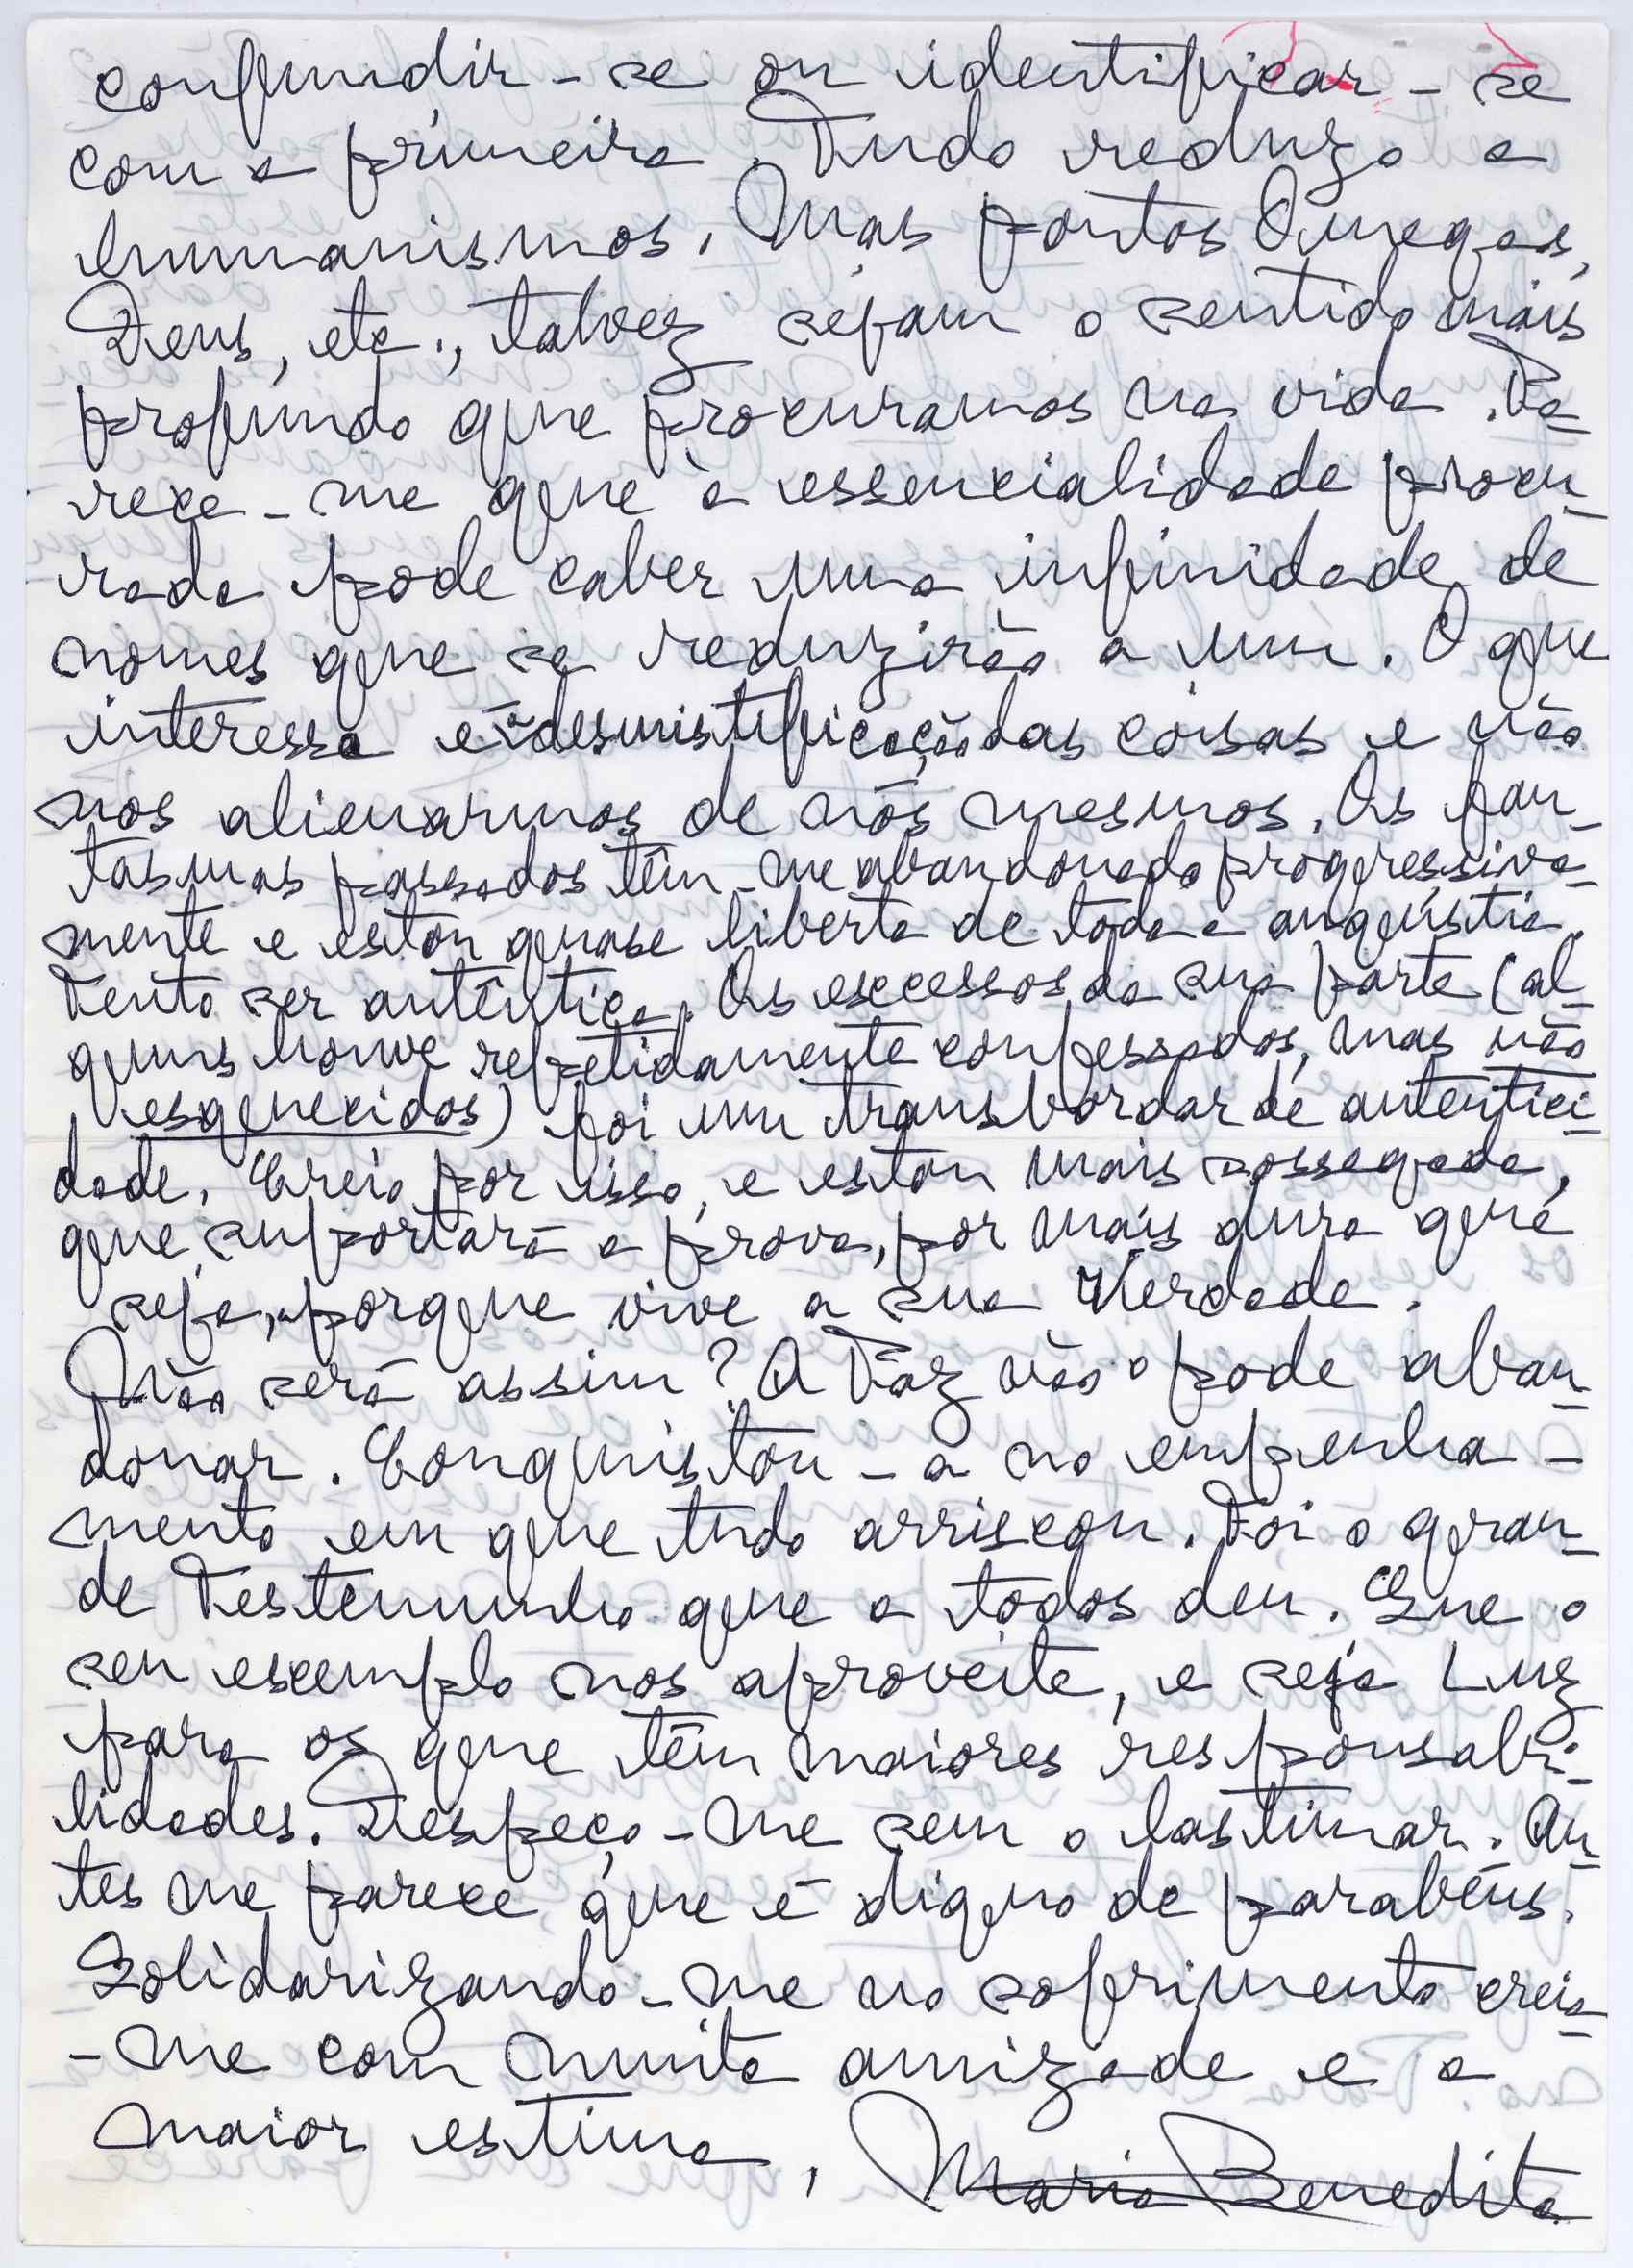 confundir-se ou identificar-se
com a primeira. Tudo reduzo a
humanismos. Mas pontos Omegas,
Deus, etc., talvez sejam o sentido mais
profundo que procuramos na vida. Pa-
rece-me que à essencialidade procu-
rada pode caber uma infinidade de
nomes que se reduzirão a um. O que
interessa é a desmistificação das coisas e não
nos alienarmos de nós mesmos. Os fan-
tasmas passados têm-me abandonado progressiva-
mente e estou quase liberta de toda a angústia.
Tento ser autêntica. Os excessos da sua parte (al-
guns houve repetidamente confessados, mas não
esquecidos) foi um transbordar de autentici-
dade. Creio por isso, e estou mais sossegada,
que suportará a prova, por mais dura que
seja, porque vive a sua Verdade.
Não será assim? A Paz não o pode aban-
donar. Conquistou-a no empenha-
mento em que tudo arriscou. Foi o gran-
de Testemunho que a todos deu. Que o
seu exemplo nos aproveite, e seja Luz
para os que têm maiores responsabi-
lidades. Despeço-me sem o lastimar. An-
tes me parece que é digno de parabéns.
Solidarizando-me no sofrimento creia-
-me com muita amizade e a
maior estima, Maria Benedita